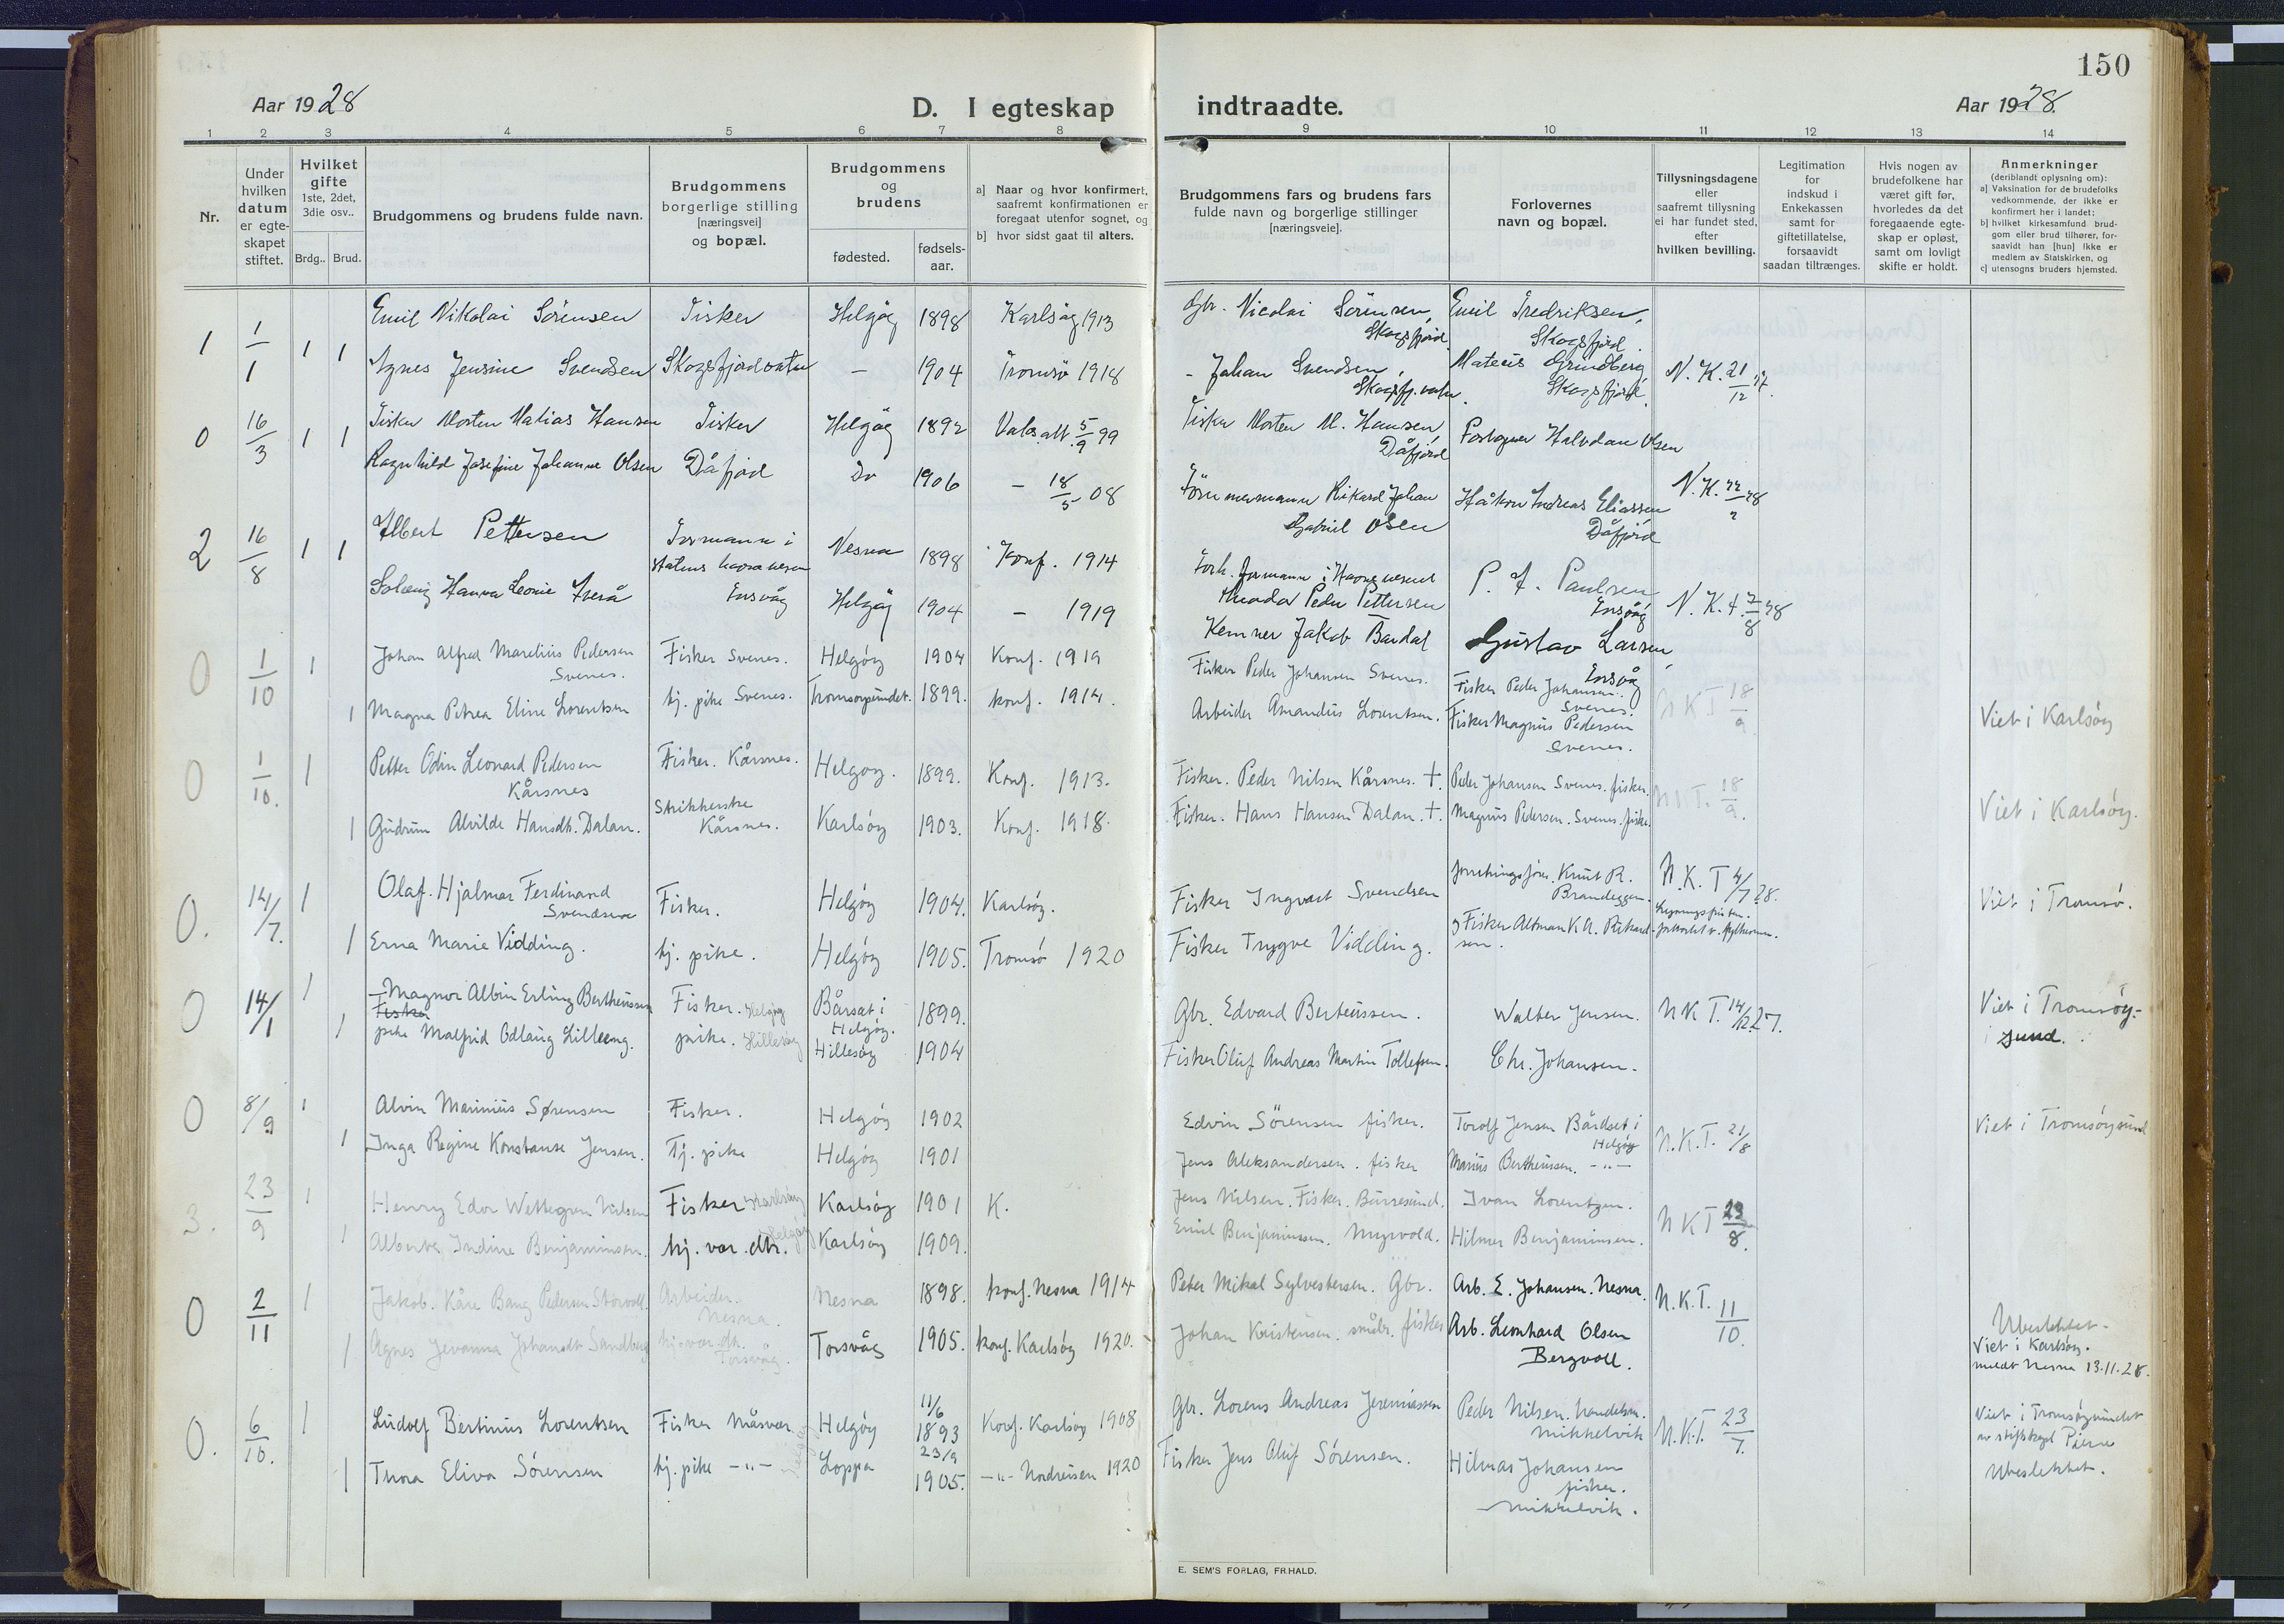 150
Aar 1928
D. I egteskap indtraadte.
Aar 1928.
1 2 3 4 5 6 7 8 9 10 11 12 13 14
Nr.
Under hvilken datum er egte-skapet stiftet.
Hvilket gifte 1ste, 2det, 3die osv..
Brdg..
Brud.
Brudgommens og brudens fulde navn.
Brudgommens borgerlige stilling [næringsvei] og bopæl.
Brudgommens og brudens
fødested.
fødsels-aar.
a] Naar og hvor konfirmert, saafremt konfirmationen er foregaat utenfor sognet, og
b] hvor sidst gaat til alters.
Brudgommens fars og brudens fars fulde navn og borgerlige stillinger [næringsveie].
Forlovernes navn og bopæl.
Tillysningsdagene eller saafremt tillysning ei har fundet sted, efter hvilken bevilling.
Legitimation for indskud i Enkekassen samt for giftetillatelse, forsaavidt saadan tiltrænges.
Hvis nogen av brudefolkene har været gift før, hvorledes da det foregaaende egte-skap er opløst, samt om lovligt skifte er holdt.
Anmerkninger (deriblandt oplysning om):
a] Vaksination for de brudefolks vedkommende, der ikke er konfirmert her i landet;
b] hvilket kirkesamfund brud-gom eller brud tilhører, for-saavidt han [hun] ikke er medlem av Statskirken, og
c] utensogns bruders hjemsted.
1 1/1 1 1 Emil Nikolai Sørensen Fisker Helgøy 1898 Karlsøy 1913 Gbr. Nicolai Sørensen, Skogsfjord Emil Fredriksen, Skogsfjord.
Agnes Jensine Svendsen Skogsfjordvatn — 1904 Tromsø 1918 - Johan Svendsen, Skogsfj.vatn. Mateus Grundberg Skogsfjord. N.K. 21/12 27.
0 16/3 1 1 Fisker Morten Matias Hansen Fisker Helgøy 1892 Vaks.att. 5/9 99 Fisker Morten M. Hansen, Dåfjord Halvdan Olsen
Ragnhild Josefine Johanne Olsen Dåfjord Do 1906 — 18/5 08 Rikard Johan Gabriel Olsen Håkon Andreas Eliassen Dåfjord N.K. 22/2 28
2 16/8 1 1 Albert Pettersen Formann i statens havnevesen Nesna 1898 Konf. 1914 Forh. formann i Havnevesenet Peder Pettersen P. F. Paulsen
Solveig Hanna Leonie Helgøy 1904 — 1919 Kemner Jakob Bardal Gustav Larsen, N.K.T. 7/8 28
0 1/10 1 Johan Alfred Marelius Pedersen Svenes. Fisker Svenes. Helgøy 1904 Konf. 1919 Fisker Peder Johansen Svenes. Fisker Peder Johansen. Svenes. N K T 18/9
1 Magna Petrea Eline Lorentsen tj. pike Svenes. Tromsøysundet. 1899. konf. 1914. Arbeider Amandus Lorentsen. Fisker Magnus Pedersen Svenes. Viet i Karlsøy
0 1/10. 1 Petter Odin Leonard Pedersen Kårsnes Fisker. Kårsnes. Helgøy. 1899. Konf. 1913. Fisker. Peder Nilsen Kårsnes. †. Peder Johansen Svenes. fisker. N.K.T. 18/9.
1 Gudrun Alvilde Hansdt. Dalan. Strikkerske Kårsnes. Karlsøy 1903. Konf. 1918. Fisker. Hans Hansen Dalan. †. Magnus Pedersen. Svenes. fisker. Viet i Karlsøy.
0. 14/7. 1 Olaf Hjalmar Ferdinand Svendsen Fisker. Helgøy 1904. Karlsøy. Fisker Ingvart Svendsen forretningsfører Knut R. Brandeggen. N.K.T 4/7 28. Viet i Tromsø.
1 Erna Marie Vidding. tj. pike. Helgøy 1905. Tromsø 1920 Fisker Trygve Vidding. Fisker Altman K.A. Rikard-sen.
0 14/1 1 Magnor Albin Erling Bertheussen Fisker Fisker. Helgøy Bårsat i Helgøy. 1899. Gbr. Edvard Berteussen. Walter Jensen. N K T. 14/12 27. Viet i Tromsøy-sund.
1 pike Malfrid Odlaug Lilleeng. pike. Hillesøy Hillesøy 1904 Fisker Oluf Andreas Martin Tollefsen. Chr. Johansen.
0 8/9 1 Alvin Marinius Sørensen Fisker. Helgøy 1902 Edvin Sörensen fisker. Torolf Jensen Bårdset i Helgøy N.K.T. 21/8 Viet i Tromsøysund
1 Inga Regine Konstanse Jensen. Tj. pike Helgøy 1901 Jens Aleksandersen. fisker Marius Bertheussen. -"-
3. 23/9 1 Henry Edor Wettegren Nilsen Fisker Karlsøy Karlsøy 1901 K. Jens Nilsen. Fisker. Burøysund. Ivan Lorentzen. N K T 23/8.
1 Alberte Indine Benjaminsen. hj. vær. dtr. Helgøy Karlsøy 1909. Emil Benjaminsen. Myrvold. Hilmer Benjaminsen.
0 2/11 1 Jakob Kåre Bang Pedersen Storvoll. Arbeider. Nesna. Nesna 1898. konf. Nesna 1914 Peter Mikal Sylvestersen. Gbr. Arb. E. Johansen. Nesna. N.K.T. 11/10.
1 Agnes Jevanna Johansdt. Sandberg hj. vær. dtr. Torsvåg. Torsvåg 1905. konf. Karlsøy 1920. Johan Kristensen. småbr. fisker Arb. Leonhard Olsen Bergvoll. Ubeslektet. Viet i Karlsøy. meldt Nesna 13.11.28.
0. 6/10. 1 Ludolf Bertinius Lorentsen Fisker Måsvær Helgøy 11/6 1893 Konf. Karlsøy 1908 Gbr. Lorens Andreas Jeremiassen Peder Nilsen. handelsm. Mikkelvik N.K.T. 23/7. Viet i Tromsøysundet av stiftskapl.
1 Thora Eliva Sörensen tj. pike -"- Helgøy Loppa 23/9 1905. -"- Nordreisen 1920 Fisker Jens Oluf Sörensen. Hilmar Johansen fisker. Mikkelvik. Ubeslektet.
E. SEM'S FORLAG, FR.HALD.